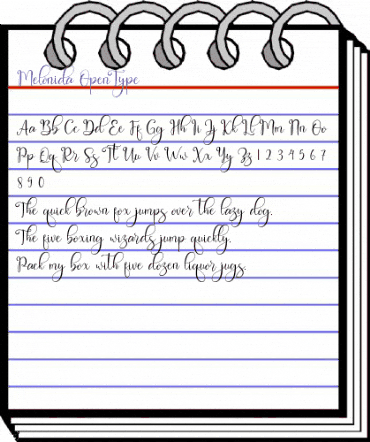 Melonida OpenType
Aa Bb Cc Dd Ee Ff Gg Hh Ii Jj Kk Ll Mm Nn Oo
Pp Qq Rr Ss Tt Uu Vv Ww Xx Yy Zz 1 2 3 4 5 6 7
8 9 0
The quick brown fox jumps over the lazy dog.
The five boxing wizards jump quickly.
Pack my box with five dozen liquor jugs.